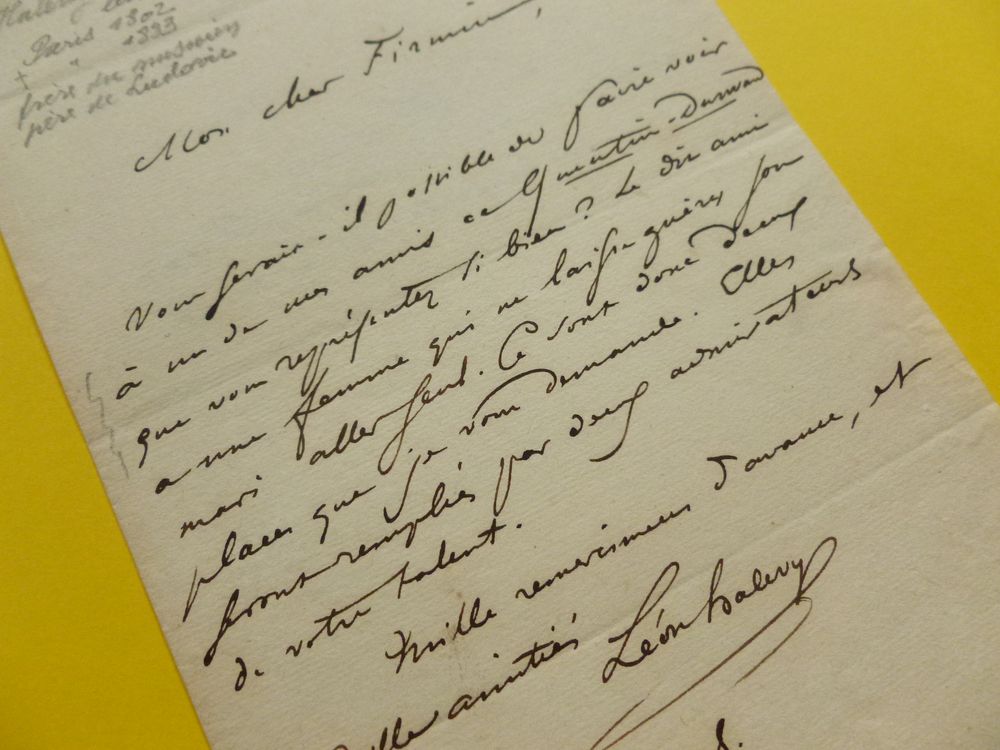 Halevy
Paris 1802
+ " 1883
frère du musicien
père de Ludovic
Mon cher Firmin,
Vous serait-il possible de faire voir
à un de mes amis ce Quentin-Durward
que vous représentez si bien? Le dit ami
a une femme qui ne laisse guères son
mari aller seul. Ce sont donc deux
places que je vous demande. Elles
seront remplies par deux admirateurs
de votre talent.
Mille remercimens d'avance, et
mille amitiés
Léon halevy